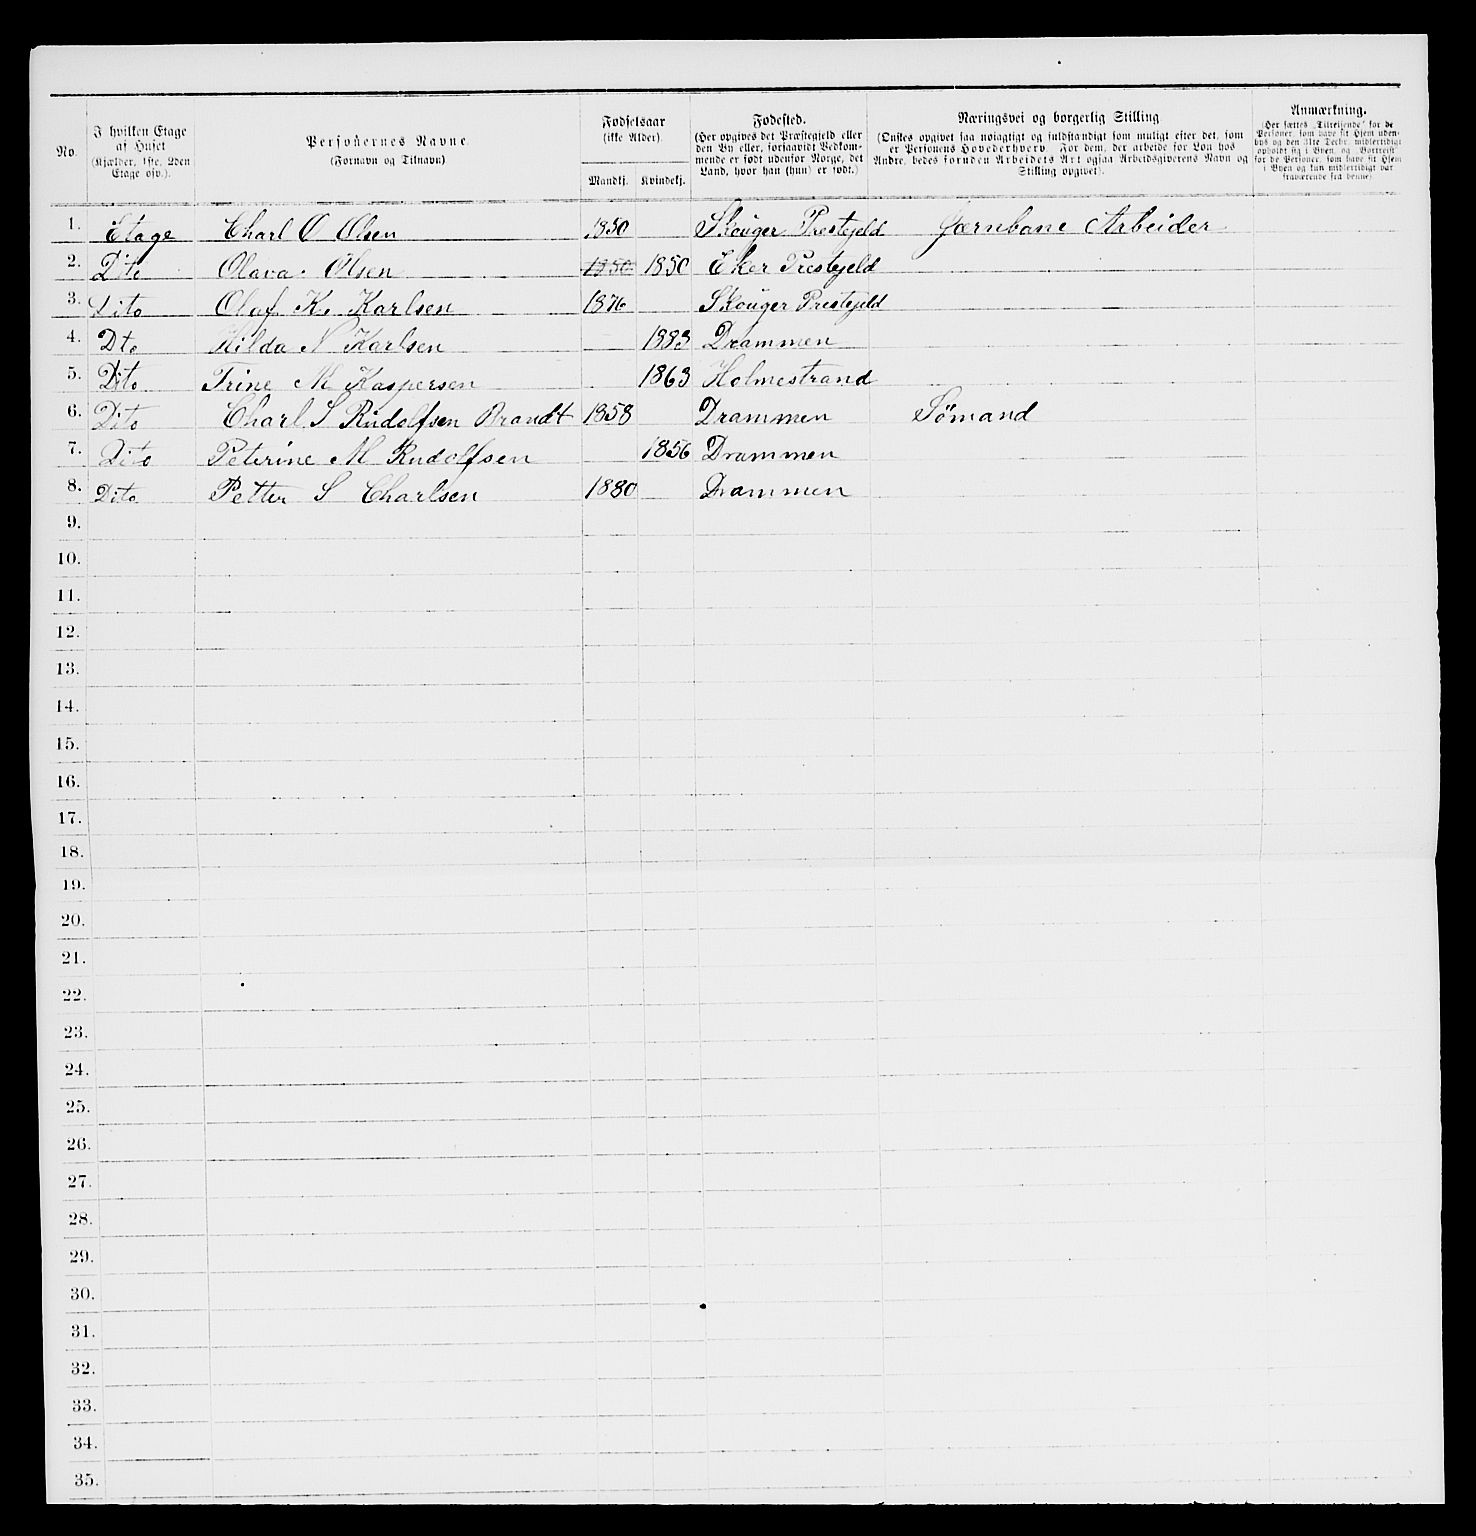 No.
I hvilken Etage af Huset (Kjælder, 1ste, 2den Etage osv.).
Personernes Navne (Fornavn og Tilnavn)
Fødselsaar (ikke Alder).
Mandkj. Kvindekj.
Fødested. (Her opgives det Præstegjeld eller den By eller, forsaavidt Vedkommende er født udenfor Norge, det Land, hvor han (hun) er født.)
Næringsvei og borgerlig Stilling (Ønskes opgivet saa nøiagtigt og fuldstændigt som muligt efter det, som er Personens Hovederhverv. For dem, der arbeide for Løn hos Andre, bedes foruden Arbeidets Art ogsaa Arbeidsgiverens Navn og Stilling opgivet).
Anmærkning. (Her sættes „Tilreisende“ for de Personer, som have sit Hjem udenbys og den 31te Decbr. midlertidigt opholdt sig i Byen, og „Bortreist“ for de Personer, som have sit Hjem i Byen og kun midlertidigt var fraværende fra denne)
1. Etage Charl O Olsen 1850 Skouger Prestejeld Jærnbane Arbeider
2. Dito Olava Olsen 1850 1850 Eker Prestejeld
3. Dito Olaf K. Karlsen 1876 Skouger Prestejeld
4. Dto Hilda N Karlsen 1883 Drammen
5. Dito Trine M Kaspersen 1863 Holmestrand
6. Dito Charl S Rudolfsen Brandt 1858 Drammen Sömand
7. Dito Peterine M Rudolfsen 1856 Drammen
8. Dito Petter S Charlsen 1880 Drammen
9.
10.
11.
12.
13.
14.
15.
16.
17.
18.
19.
20.
21.
22.
23.
24.
25.
26.
27.
28.
29.
30.
31.
32.
33.
34.
35.